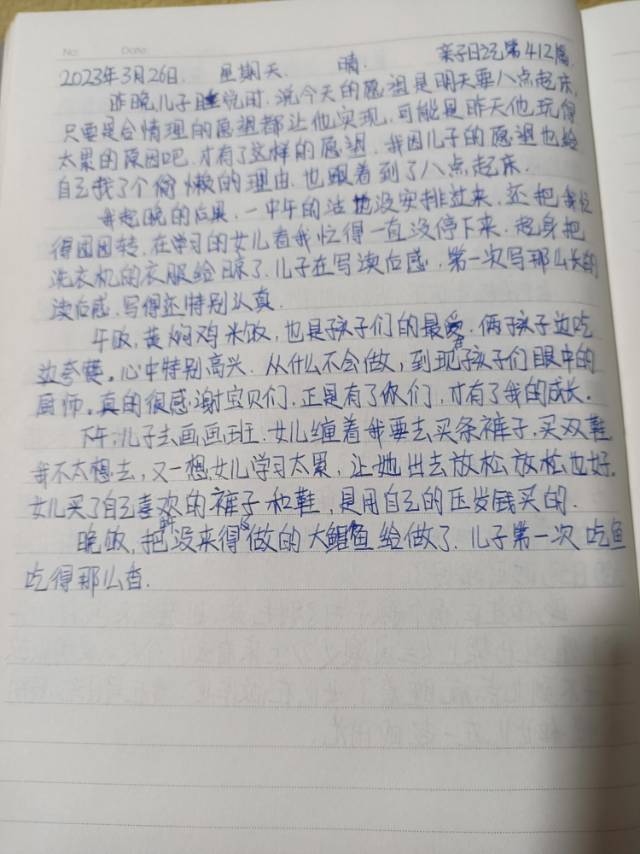 No: Date:
亲子日记第412篇
2023年3月26日 星期天. 晴.
昨晚儿子睡觉时.说今天的愿望是明天要八点起床,
只要是合情理的愿望都让他实现.可能是昨天他玩得
太累的原因吧.才有了这样的愿望.我因儿子的愿望也给
自己找了个偷懒的理由.也跟着到了八点起床.
我起晚的后果.一中午的活也没安排过来.还把我忙
得团团转.在学习的女儿看我忙得一直没停下来.起身把
洗衣机的衣服给晾了.儿子在写读后感,第一次写那么长的
读后感.写得还特别认真.
午饭,黄焖鸡米饭,也是孩子们的最爱.俩孩子边吃
边夸赞.心中特别高兴.从什么不会做,到现孩子们眼中的
厨师。真的很感谢宝贝们.正是有了你们,才有了我的成长。
下午,儿子去画画班.女儿缠着我要去买条裤子,买双鞋
我不太想去,又一想女儿学习太累,让她出去放松放松也好.
女儿买了自己喜欢的裤子和鞋,是用自己的压岁钱买的.
晚饭,把昨没来得及做的大鲳鱼给做了.儿子第一次吃鱼
吃得那么香.